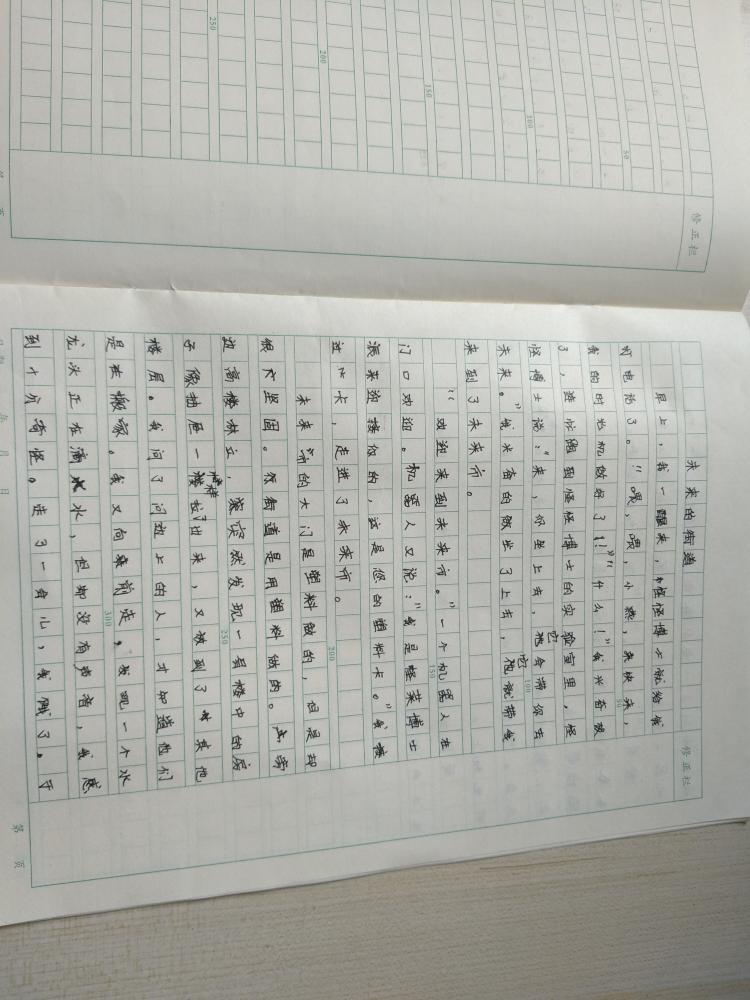 未来的街道
早上,我一醒来,怪怪博士就给我
打电话了。"喂,喂,小熊,来快来,
我的时光机做好了!""什么!"我米奋极
了,连忙跑到怪怪博士的实验室里,怪
怪博士说:"来,你坐上去,它会带你去
未来。"我米奋的就坐了上去,它就带我
来到了未来市。
"欢迎来到未来市。"一个机器人在
门口欢迎。机器人又说:"我是怪莱博士
派来迎接你的,这是您的塑料卡。"我
过上卡,走进了未来市。
未来市的大门是塑料做的,但是却
很大坚固。很街道是用塑料做的。
边高楼林立,突然发现一层楼中的房
子像抽屉一样出来,又放到了其他
楼层。我问了问边上的人,才知道他们
是在搬家。我又向前走,发现一个水
龙头正在滴水,但却没有声音,我感
到十分奇怪。走了一身心,我饿了。于
修正栏
50
100
150
200
250
300
修正栏
50
100
150
200
250
年 月 日
第 页